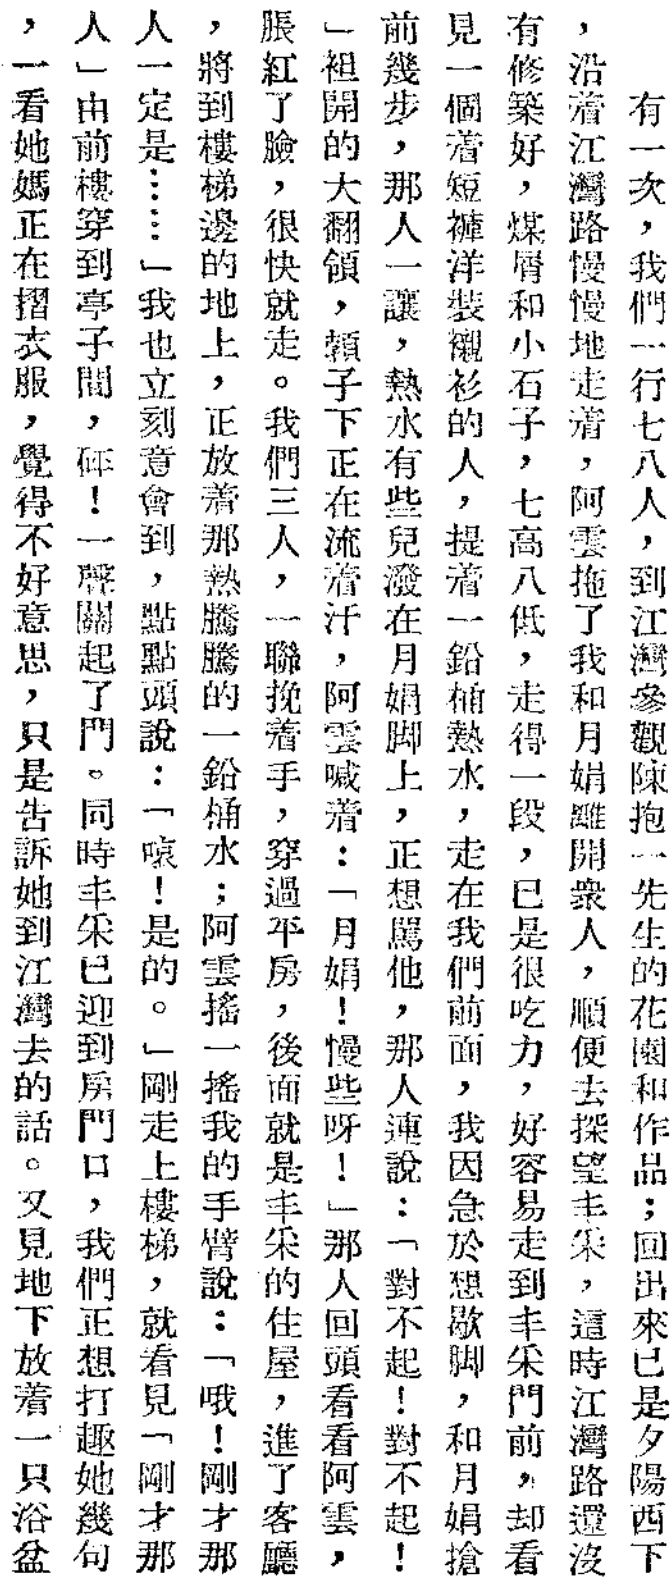 有一次，我們一行七八人，到江灣參觀陳抱一先生的花園和作品；回出來已是夕陽西下
，沿着江灣路慢慢地走着，阿雲拖了我和月娟離開衆人，順便去探望丰采，這時江灣路還沒
有修築好，煤屑和小石子，七高八低，走得一段，已是很吃力，好容易走到丰采門前，却看
見一個着短褲洋裝襯衫的人，提着一鉛桶熱水，走在我們前面，我因急於想歇脚，和月娟搶
前幾步，那人一讓，熱水有些兒潑在月娟脚上，正想駡他，那人連說：「對不起！對不起！
」袒開的大翻領，頸子下正在流着汗，阿雲喊着：「月娟！慢些呀！」那人回頭看看阿雲，
脹紅了臉，很快就走。我們三人，一聯挽着手，穿過平房，後面就是丰采的住屋，進了客廳
，將到樓梯邊的地上，正放着那熱騰騰的一鉛桶水；阿雲搖一搖我的手臂說：「哦！剛才那
人一定是……」我也立刻意會到，點點頭說：「噢！是的。」剛走上樓梯，就看見「剛才那
人」由前樓穿到亭子間，砰！一聲關起了門。同時丰采已迎到房門口，我們正想打趣她幾句
，一看她媽正在摺衣服，覺得不好意思，只是告訴她到江灣去的話。又見地下放着一只浴盆